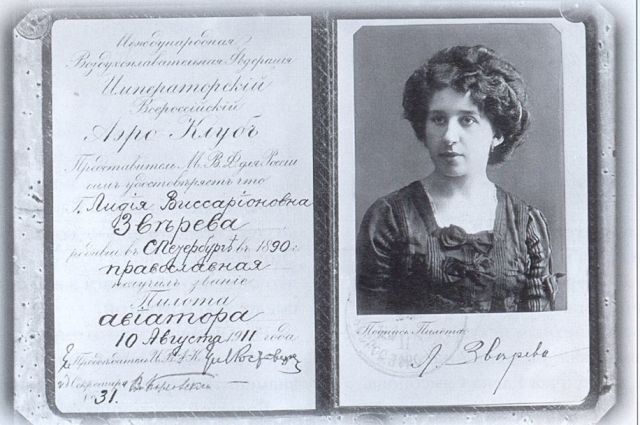 Международная
Воздухоплавательная Федерацiя
Императорскiй
Всероссiйскiй
Аэро Клубъ
Представитель М.В.Ф. для Россiи
симъ удостовѣряетъ что
Г. Лидiя Виссарiоновна
Звѣрева
родивш въ С Петербургѣ въ 1890 г.
православная
получилъ званiе
Пилота
авiатора
10 Августа 1911 года
Секретарь
№ 31.
Подпись Пилота
Л. Звѣрева